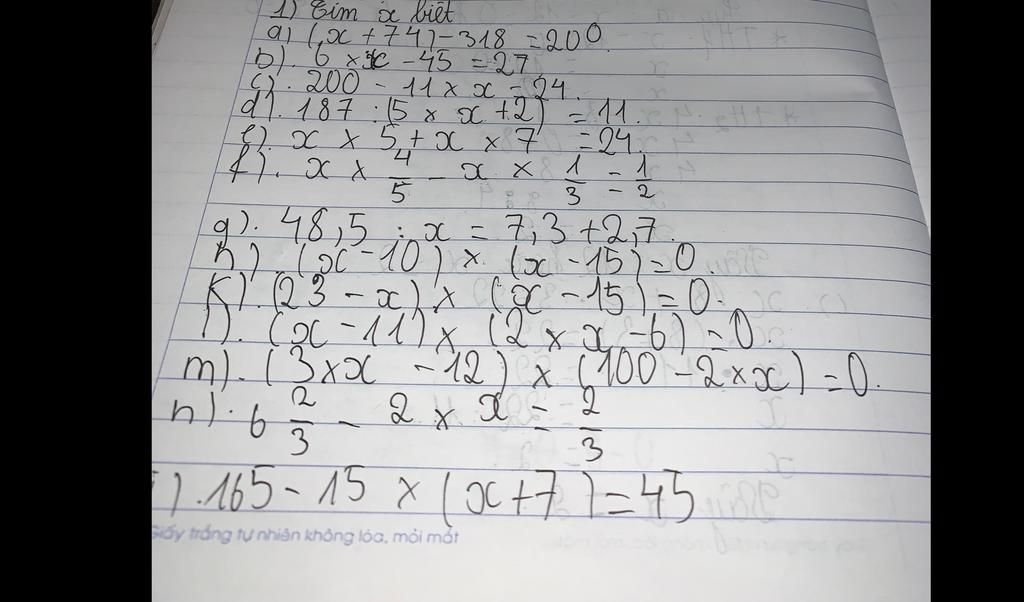 1) Tìm x biết
a) (x + 74) - 318 = 200
b). 6 × x - 45 = 27
c). 200 - 11 × x = 24.
d). 187 : (5 × x + 2) = 11.
e). x × 5 + x × 7 = 24.
f). x × 4/5 - x × 1/3 = 1/2
g). 48,5 : x = 7,3 + 2,7.
h). (x - 10) × (x - 15) = 0.
k). (23 - x) × (x - 15) = 0.
l). (x - 11) × (2 × x - 6) = 0.
m). (3 × x - 12) × (100 - 2 × x) = 0.
n). 6 2/3 - 2 × x = 2/3
). 165 - 15 × (x + 7) = 45
Giấy trắng tự nhiên không lóa, mỏi mắt